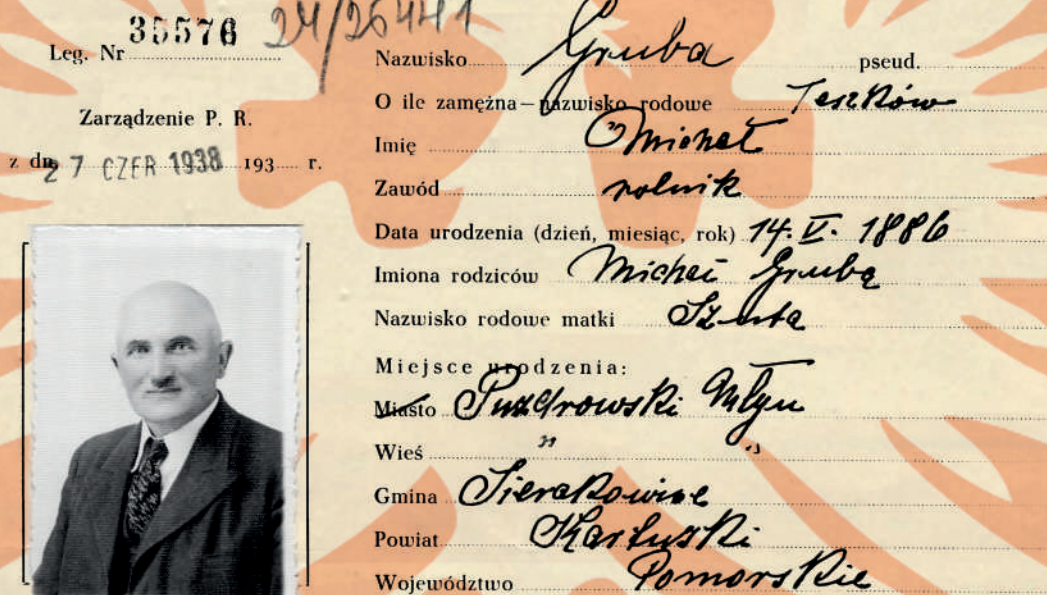 Leg. Nr 35576
24/26441
Zarządzenie P. R.
z dn. 27 CZER 1938 193 r.
Nazwisko Gruba pseud.
O ile zamężna — nazwisko rodowe Teszków
Imię Michał
Zawód rolnik
Data urodzenia (dzień, miesiąc, rok) 14. V. 1886
Imiona rodziców Michał Gruba
Nazwisko rodowe matki
Miejsce urodzenia:
Miasto Puzdrowski Młyn
Wieś " "
Gmina Sierakowice
Powiat Kartuski
Województwo Pomorskie